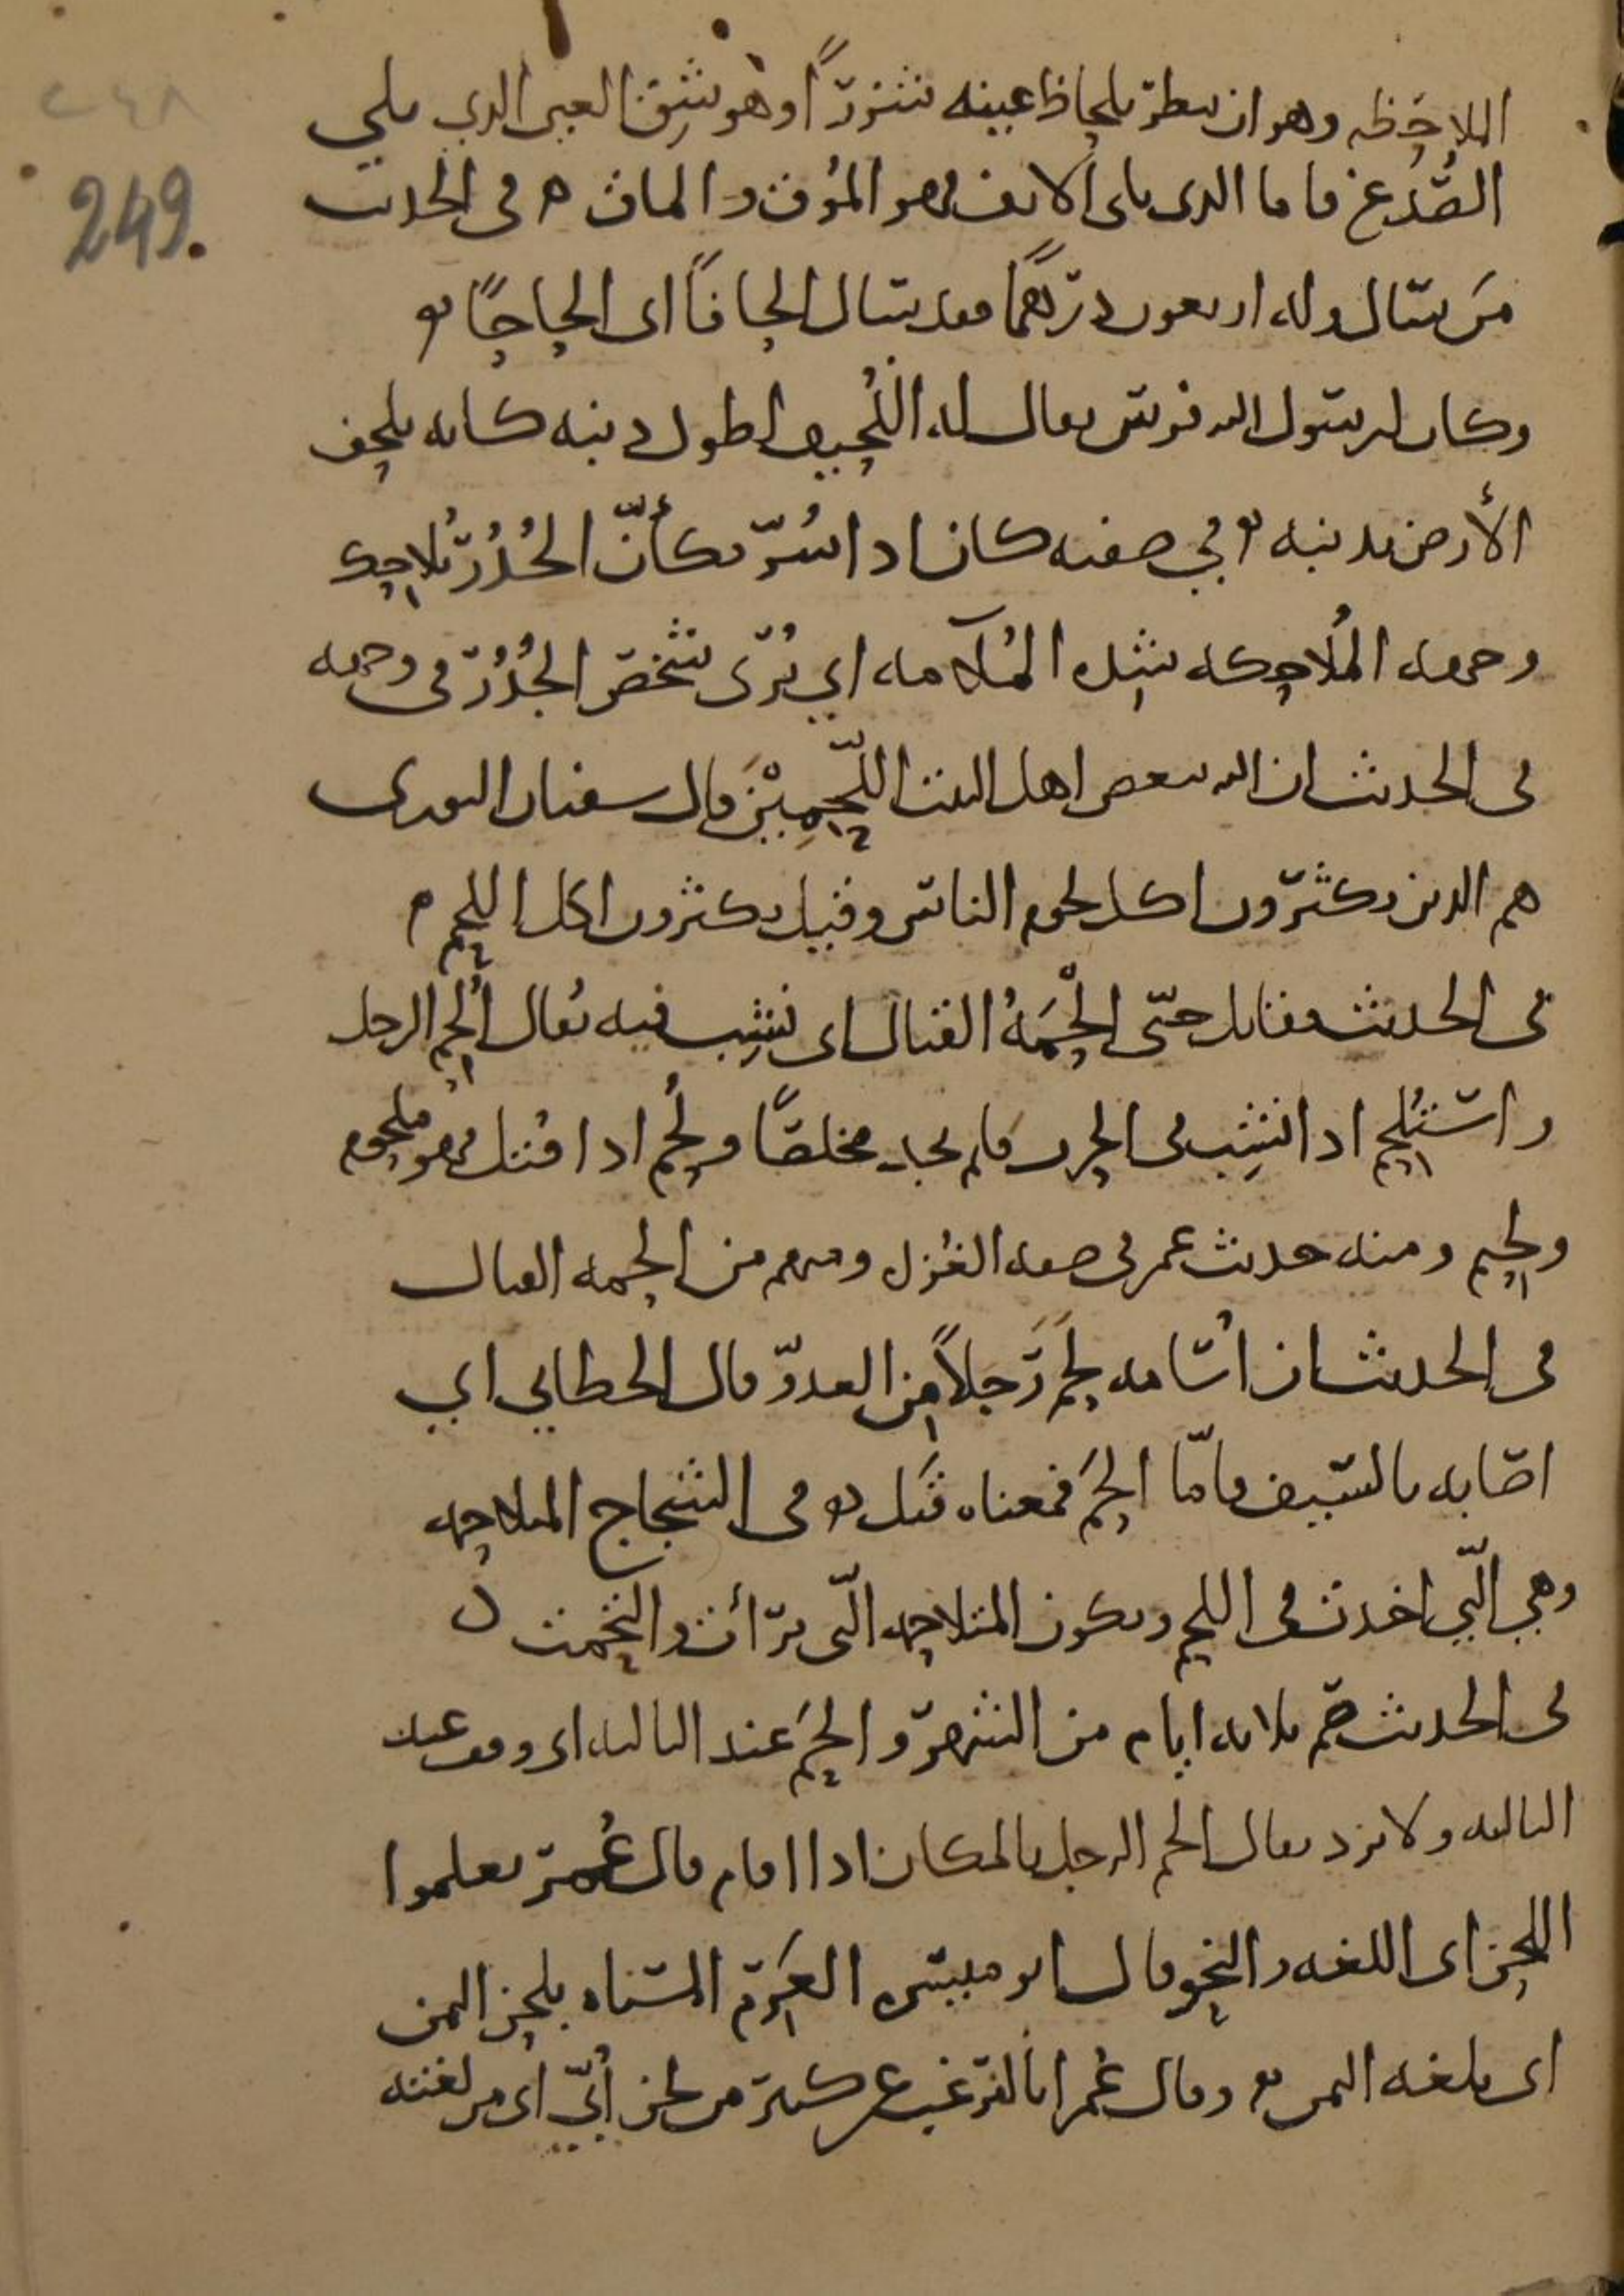 ٢٤٨
249.
الملاحَظه وهو ان ينظر بلحاظ عينه شزرًا وهو شِق العين الذي يلي
الصُدغ فاما الذي يلي الانف فهو المُوق والماق ه في الحديث
مَن سال وله اربعون درهمًا فقد سال الحافًا اى الحاحًا ه
وكان لرسول الله فرس يقال له اللُحيف لطول ذنبه كانه يلحف
الأرض بذنبه ه في صفته كان اذا سُرّ فكأنّ الجُدُرَ تُلاحِك
وجهه المُلاحكه شده المُلآمه اي يُرَى شخص الجُدُر في وجهه
في الحديث ان الله يبغض اهل البيت اللَّحِمِيْنَ قال سفيان الثورى
هم الذين يكثرون اكل لحوم الناس وقيل يكثرون اكل اللحم ه
في الحديث فقاتل حتّى الْحَمَهُ القتال اى نشِب فيه يُقال أُلحِم الرجل
واستُلحِم اذا نشِب في الحرب فلم يجد مخلصًا ولُحِم اذا قتل فهو ملحوم
ولحيم ومنه حديث عمر في صفه الغُزاه ومنهم من الحمه القتال
في الحديث ان اُسامه لحَمَ رَجلاً من العدوّ قال الخطابي اي
اصابه بالسيف فامّا الحَمَ فمعناه قتل ه في الشجاج المتلاحمه
وهي الّتي اخذت في اللحم ويكون المتلاحمه الّتي برأت والتحمت ه
في الحديث صُم ثلاثه ايام من الشهر والحَمَ عند الثالثه اى وقف عند
الثالثه ولا يزد يقال الحم الرجل بالمكان اذا اقام قال عُمر تعلموا
اللحن اى اللغه والنحو قال ابو ميسره العَرِم المسَناه بلحن اليمن
اى بلغه اليمن ه وقال عُمر انا لنرغب عن كثير من لحن أُبَيّ اى من لغته